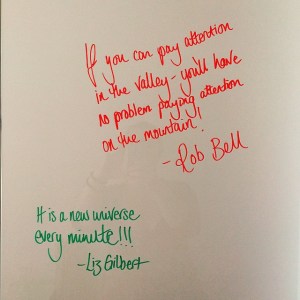 If you can pay attention
in the valley - you'll have
no problem paying attention
on the mountain!
- Rob Bell
It is a new universe
every minute!!!
- Liz Gilbert